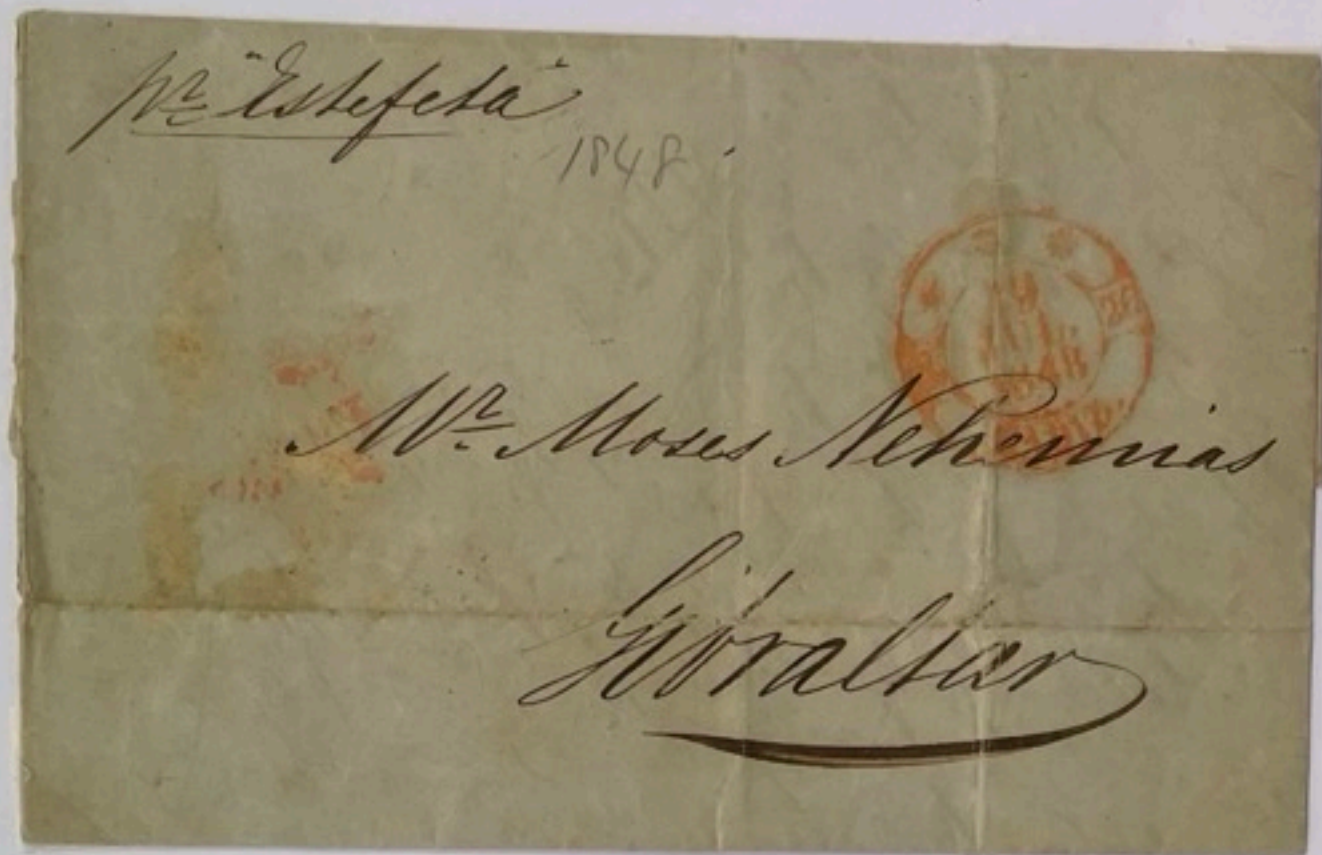 pr "Estefeta"
1848
Mr. Moses Nehemias
Gibraltar